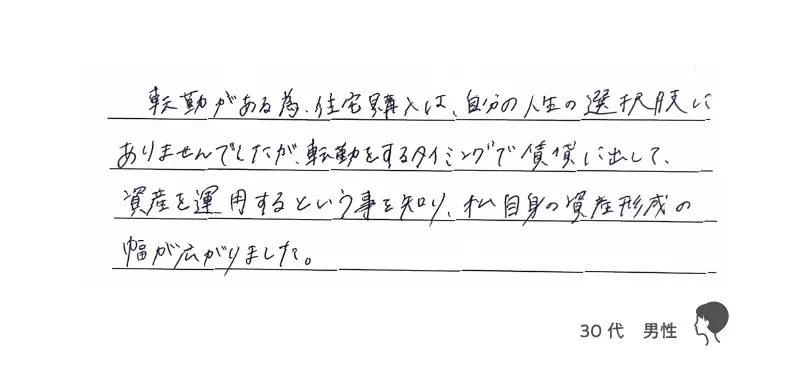 転勤がある為、住宅購入は、自分の人生の選択肢に
ありませんでしたが、転勤をするタイミングで債貸に出して、
資産を運用するという事を知り、私自身の資産形成の
幅が広がりました。
30代 男性